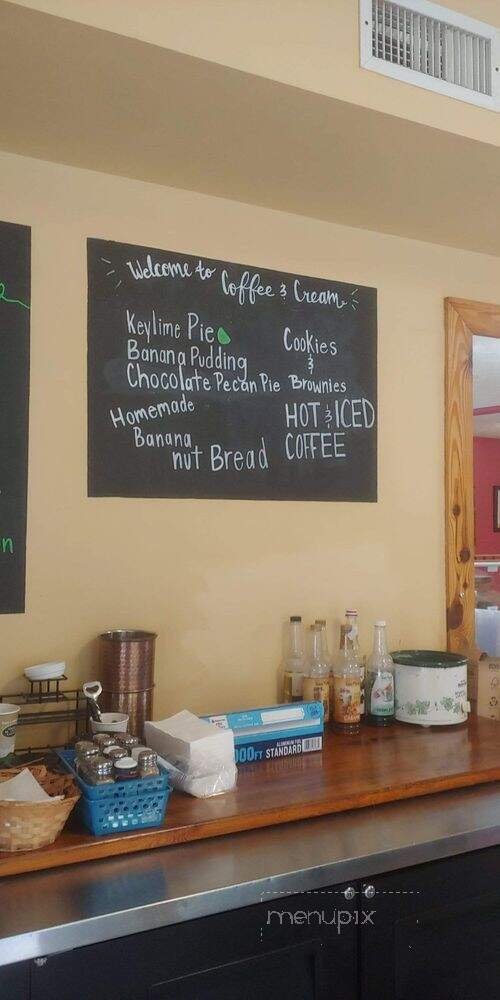 Welcome to Coffee & Cream
Keylime Pie
Banana Pudding
Chocolate Pecan Pie
Homemade
Banana
nut Bread
Cookies
&
Brownies
HOT & ICED
COFFEE
n
000FT
ALUMINUM FOIL
STANDARD
menupix